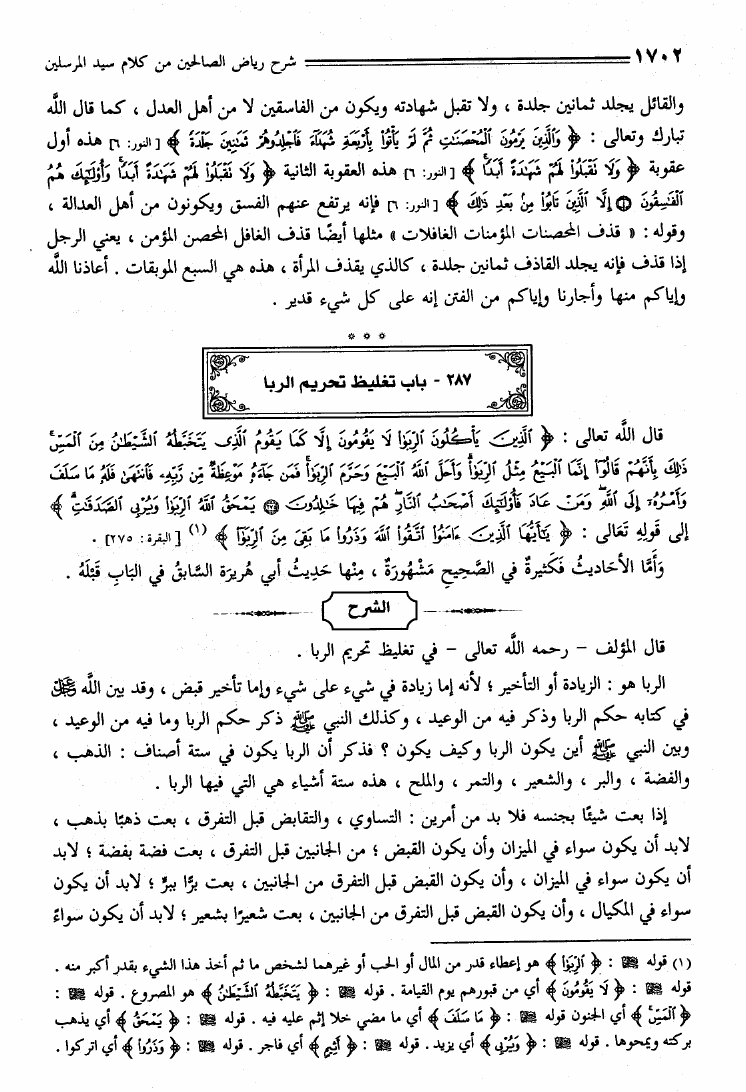 ١٧٠٢ شرح رياض الصالحين من كلام سيد المرسلين
والقائل يجلد ثمانين جلدة ، ولا تقبل شهادته ويكون من الفاسقين لا من أهل العدل ، كما قال الله
تبارك وتعالى : ﴿ وَٱلَّذِينَ يَرْمُونَ ٱلْمُحْصَنَٰتِ ثُمَّ لَمْ يَأْتُوا۟ بِأَرْبَعَةِ شُهَدَآءَ فَٱجْلِدُوهُمْ ثَمَٰنِينَ جَلْدَةً ﴾ [ النور: ٦] هذه أول
عقوبة ﴿ وَلَا تَقْبَلُوا۟ لَهُمْ شَهَٰدَةً أَبَدًا ﴾ [ النور: ٦] هذه العقوبة الثانية ﴿ وَلَا تَقْبَلُوا۟ لَهُمْ شَهَٰدَةً أَبَدًا وَأُو۟لَٰٓئِكَ هُمُ
ٱلْفَٰسِقُونَ إِلَّا ٱلَّذِينَ تَابُوا۟ مِنۢ بَعْدِ ذَٰلِكَ ﴾ [ النور: ٦] فإنه يرتفع عنهم الفسق ويكونون من أهل العدالة ،
وقوله : « قذف المحصنات المؤمنات الغافلات » مثلها أيضًا قذف الغافل المحصن المؤمن ، يعني الرجل
إذا قذف فإنه يجلد القاذف ثمانين جلدة ، كالذي يقذف المرأة ، هذه هي السبع الموبقات . أعاذنا الله
وإياكم منها وأجارنا وإياكم من الفتن إنه على كل شيء قدير .
* * *
٢٨٧ - باب تغليظ تحريم الربا
قال الله تعالى : ﴿ ٱلَّذِينَ يَأْكُلُونَ ٱلرِّبَوٰا۟ لَا يَقُومُونَ إِلَّا كَمَا يَقُومُ ٱلَّذِى يَتَخَبَّطُهُ ٱلشَّيْطَٰنُ مِنَ ٱلْمَسِّ
ذَٰلِكَ بِأَنَّهُمْ قَالُوٓا۟ إِنَّمَا ٱلْبَيْعُ مِثْلُ ٱلرِّبَوٰا۟ وَأَحَلَّ ٱللَّهُ ٱلْبَيْعَ وَحَرَّمَ ٱلرِّبَوٰا۟ فَمَن جَآءَهُۥ مَوْعِظَةٌ مِّن رَّبِّهِۦ فَٱنتَهَىٰ فَلَهُۥ مَا سَلَفَ
وَأَمْرُهُۥٓ إِلَى ٱللَّهِ وَمَنْ عَادَ فَأُو۟لَٰٓئِكَ أَصْحَٰبُ ٱلنَّارِ هُمْ فِيهَا خَٰلِدُونَ ۝ يَمْحَقُ ٱللَّهُ ٱلرِّبَوٰا۟ وَيُرْبِى ٱلصَّدَقَٰتِ ﴾
إلى قولِهِ تَعَالى : ﴿ يَٰٓأَيُّهَا ٱلَّذِينَ ءَامَنُوا۟ ٱتَّقُوا۟ ٱللَّهَ وَذَرُوا۟ مَا بَقِىَ مِنَ ٱلرِّبَوٰٓا۟ ﴾ (١) [ البقرة : ٢٧٥] .
وَأَمَّا الأحاديثُ فَكَثيرةٌ في الصَّحيحِ مَشْهُورَةٌ ، مِنْها حَدِيثُ أبي هُريرَة السَّابقُ في البَابِ قَبْلَهُ .
الشرح
قال المؤلف - رحمه الله تعالى - في تغليظ تحريم الربا .
الربا هو : الزيادة أو التأخير ؛ لأنه إما زيادة في شيء على شيء وإما تأخير قبض ، وقد بين الله ﷻ
في كتابه حكم الربا وذكر فيه من الوعيد ، وكذلك النبي ﷺ ذكر حكم الربا وما فيه من الوعيد ،
وبين النبي ﷺ أين يكون الربا وكيف يكون ؟ فذكر أن الربا يكون في ستة أصناف : الذهب ،
والفضة ، والبر ، والشعير ، والتمر ، والملح ، هذه ستة أشياء هي التي فيها الربا .
إذا بعت شيئًا بجنسه فلا بد من أمرين : التساوي ، والتقابض قبل التفرق ، بعت ذهبًا بذهب ،
لابد أن يكون سواء في الميزان وأن يكون القبض ؛ من الجانبين قبل التفرق ، بعت فضة بفضة ؛ لابد
أن يكون سواء في الميزان ، وأن يكون القبض قبل التفرق من الجانبين ، بعت برًّا ببرٍّ ؛ لابد أن يكون
سواء في المكيال ، وأن يكون القبض قبل التفرق من الجانبين ، بعت شعيرًا بشعير ؛ لابد أن يكون سواءً
(١) قوله : ﴿ ٱلرِّبَوٰا۟ ﴾ هو إعطاء قدر من المال أو الحب أو غيرهما لشخص ما ثم أخذ هذا الشيء بقدر أكبر منه .
قوله : ﴿ لَا يَقُومُونَ ﴾ أي من قبورهم يوم القيامة . قوله : ﴿ يَتَخَبَّطُهُ ٱلشَّيْطَٰنُ ﴾ هو المصروع . قوله :
﴿ ٱلْمَسِّ ﴾ أي الجنون قوله : ﴿ مَا سَلَفَ ﴾ أي ما مضي خلا إثم عليه فيه . قوله : ﴿ يَمْحَقُ ﴾ أي يذهب
بركته ويمحوها . قوله : ﴿ وَيُرْبِى ﴾ أي يزيد . قوله : ﴿ أَثِيمٍ ﴾ أي فاجر . قوله : ﴿ وَذَرُوا۟ ﴾ أي اتركوا .